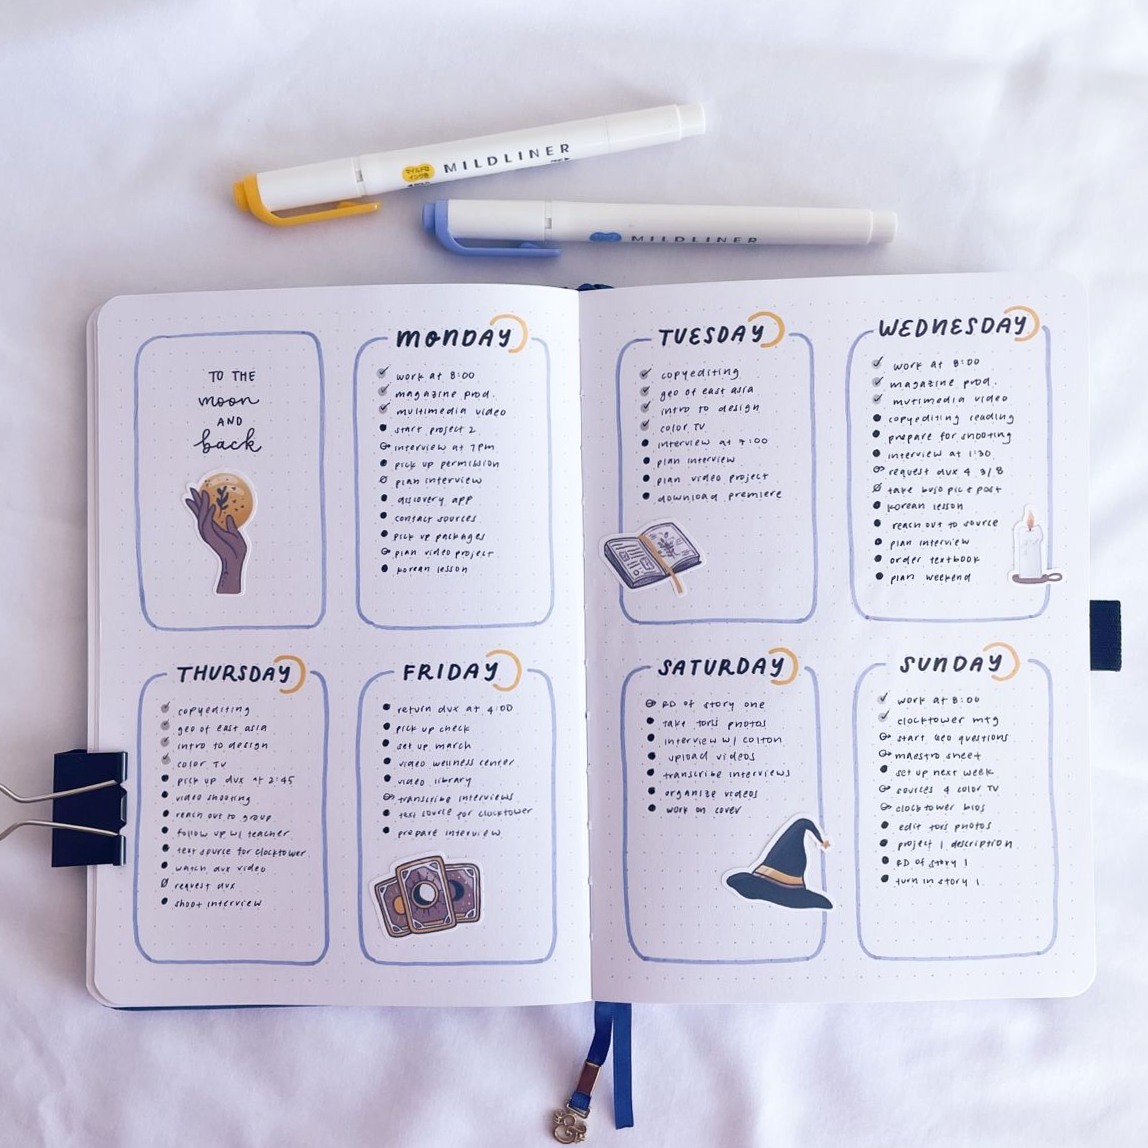 MILDLINER
MILDLINER
TO THE
moon
AND
back
MONDAY
work at 8:00
magazine prod.
multimedia video
start project 2
interview at 7pm
pick up permission
plan interview
discovery app
contact sources
pick up packages
plan video project
korean lesson
TUESDAY
copyediting
geo of east asia
intro to design
color TV
interview at 7:00
plan interview
plan video project
download premiere
WEDNESDAY
work at 8:00
magazine prod.
mutimedia video
copyediting reading
prepare for shooting
interview at 1:30
request dux 4 3/8
take bujo pic & post
korean lesson
reach out to source
plan interview
order textbook
plan weekend
THURSDAY
copyediting
geo of east asia
intro to design
color TV
pick up dux at 2:45
video shooting
reach out to group
follow up w/ teacher
text source for clocktower
watch dux video
request dux
shoot interview
FRIDAY
return dux at 4:00
pick up check
set up march
video wellness center
video library
transcribe interviews
text source for clocktower
prepare interview
SATURDAY
RD of story one
take toris photos
interview w/ colton
upload videos
transcribe interviews
organize videos
work on cover
SUNDAY
work at 8:00
clocktower mtg
start geo questions
maestro sheet
set up next week
sources 4 color TV
clocktower bios
edit toris photos
project 1 description
RD of story 1
turn in story 1